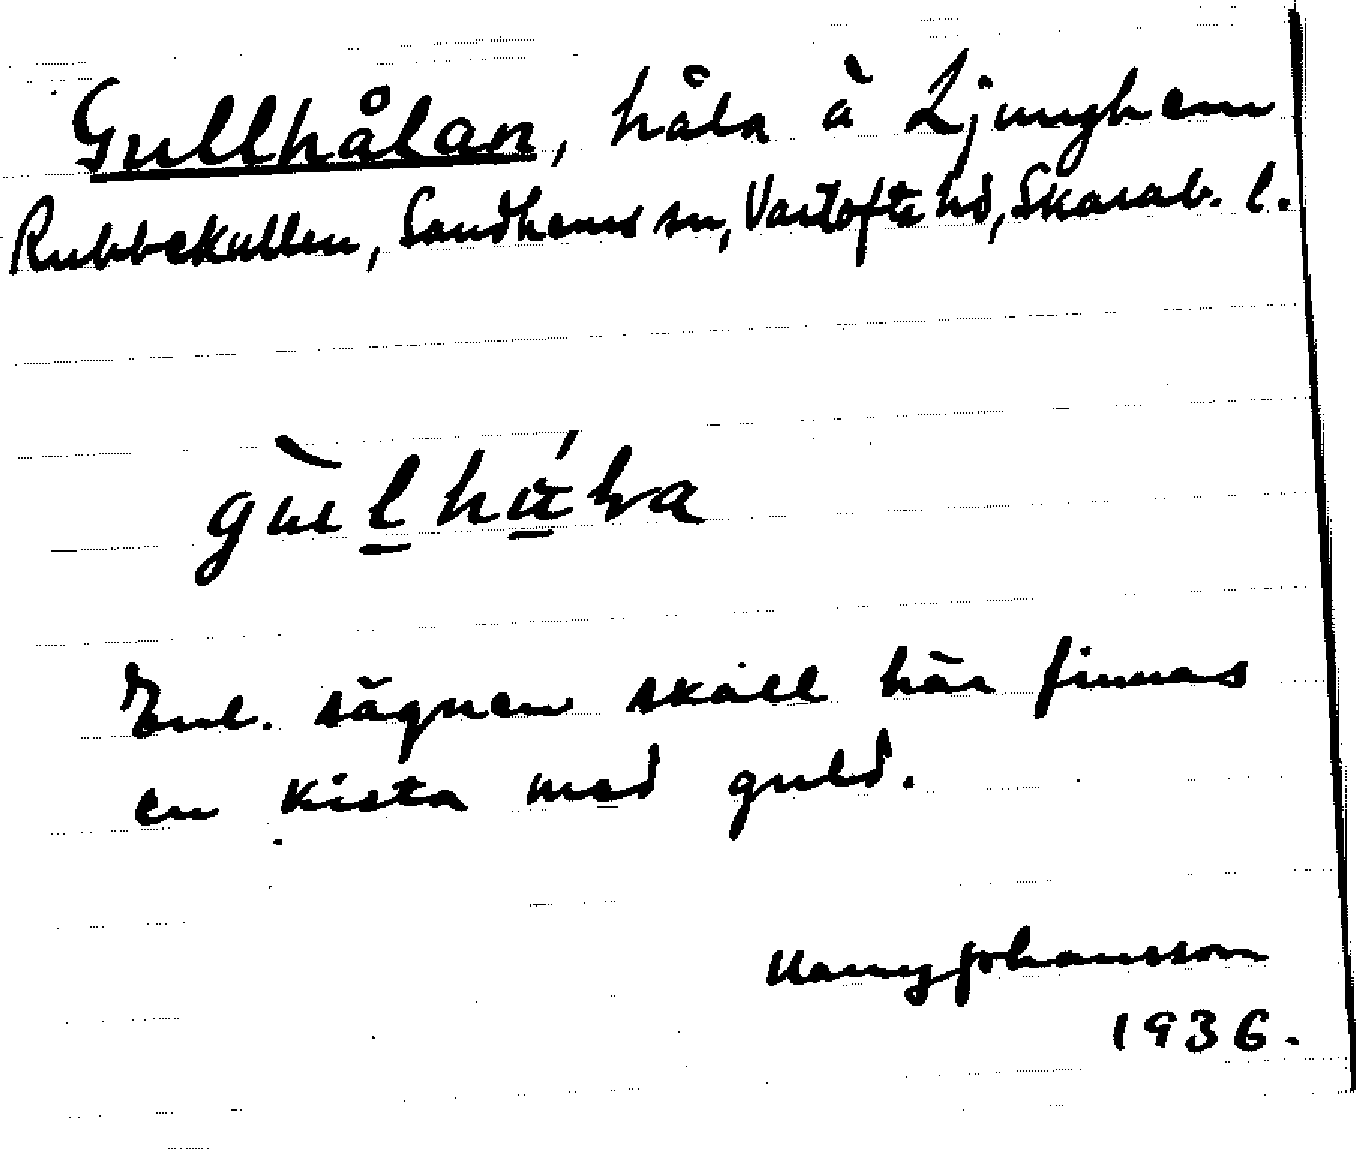 Gullhålan, håla å Ljunghem
Rubbekullen, Sandhems sn, Vartofta hd, Skarab. l.
Enl. sägnen skall här finnas
en kista med guld.
Nanny Johansson
1936.